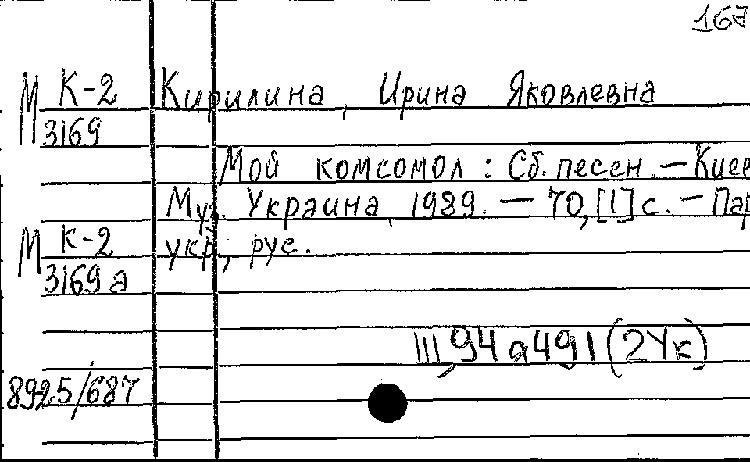 167
М К-2 Кирилина, Ирина Яковлевна
3169
Мой комсомол : Сб. песен. — Киев
Муз. Украина, 1989. — 70, [1] с. — Пар
М К-2 укр., рус.
3169а
III, 94а491 (2Ук)
8925/687